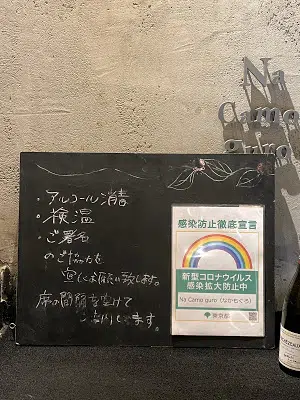 Na
Camo
guro
・アルコール消毒
・検温
・ご署名
のご協力を
宜しくお願い致します。
席の間隔を空けて
ます。
感染防止徹底宣言
新型コロナウイルス
感染拡大防止中
Na Camo guro (なかもぐろ)
東京都